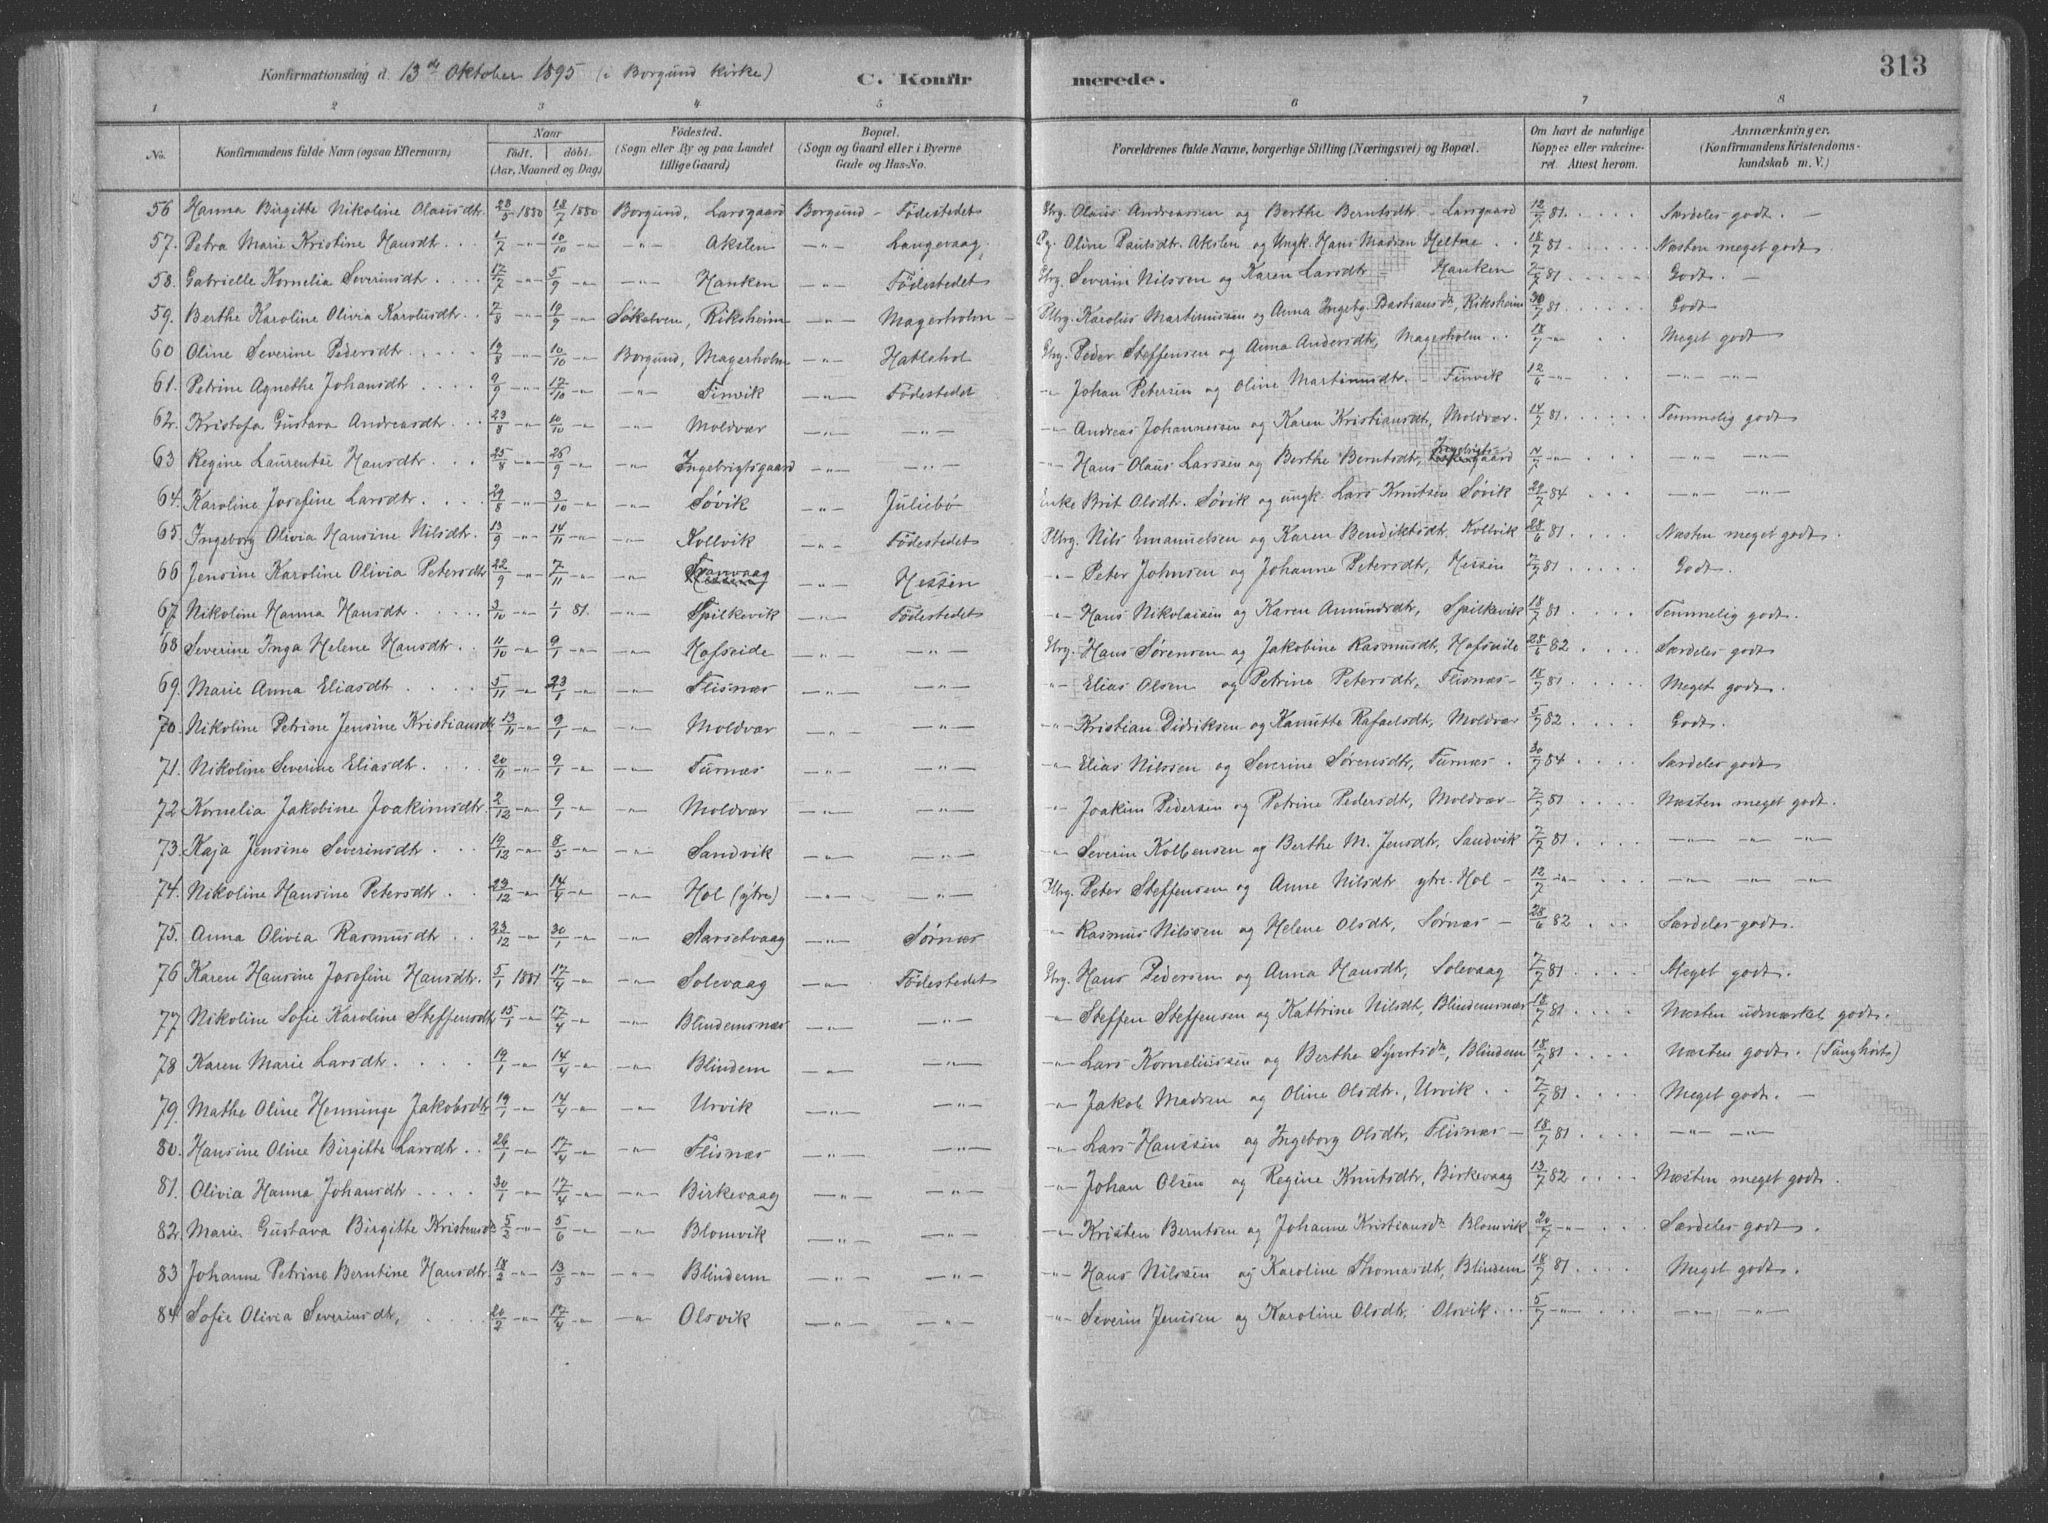 Konfirmationsdag d. 13de Oktober 1895 (i Borgund kirke) C. Konfirmerede. 313
1 2 3 4 5 6 7 8
No. Konfirmandens fulde Navn (ogsaa Efternavn) Naar Født. døbt. (Aar, Maaned og Dag) Fødested. (Sogn eller By og paa Landet tillige Gaard) Bopæl. (Sogn og Gaard eller i Byerne Gade og Hus-No. Forældrenes fulde Navne, borgerlige Stilling (Næringsvei) og Bopæl. Om havt de naturlige Kopper eller vakcineret. Attest herom. Anmærkninger. (Konfirmandens Kristendomskundskab m. V.)
56 Hanna Birgitte Nikoline Olausdtr. 28/5 1880 18/7 1880 Borgund, Larsgaard Borgund - Fødestedet Gbrg. Olaus Andreassen og Berthe Berntsdtr - Larsgaard 12/7 81. Særdeles godt. -
57. Petra Marie Kristine Hansdtr. 1/7 -"- 10/10 -"- -"- Akslen -"- Langevaag, Pg. Oline Paulsdtr. Akslen og Ungk. Hans Madsen Heltne 18/7 81. Næsten meget godt
58. Gabrielle Kornelia Severinsdtr. 17/7 -"- 5/9 -"- -"- Hanken -"- Fødestedet Gbrg. Severin Nilssen og Karen Larsdtr - Hanken 7/7 81. Godt. -
59. Berthe Karoline Olivia Karolusdtr. 7/8 -"- 19/9 -"- Søkelven, Riksheim -"- Magerholm - Plbrg. Karolus Martinussen og Anna Ingebg. Bastiansdtr, Riksheim 30/7 81. Godt
60 Oline Severine Pedersdtr. 19/8 -"- 10/10 -"- Borgund, Magerholm -"- Hatlehol Gbrg. Peder Steffensen og Anna Andersdtr, Magerholm 18/7 -"- Meget godt
61. Petrine Agnethe Johansdtr 9/9 -"- 17/10 -"- -"- Finvik -"- Fødestedet -"- Johan Petersen og Oline Martinusdtr. - Finvik 12/6 -"- -"- -"-
62. Kristofa Gustava Andreasdtr. 23/8 -"- 10/10 -"- -"- Moldvær -"- -"- -"- Andreas Johannessen og Karen Kristiansdtr, Moldvær. 14/7 81. Temmelig godt
63 Regine Laurentse Hansdtr. 25/8 -"- 26/9 -"- -"- Ingebrigtsgaard -"- -"- -"- Hans Olaus Larssen og Berthe Berntsdtr, Ingebrigtsgaard 7/7 -"- -"- -"-
64. Karoline Josefine Larsdtr. 29/8 -"- 3/10 -"- -"- Søvik -"- Juliebø Enke Brit Olsdtr. Søvik og ungk. Lars Knutsen Søvik 29/7 84 -"- -"-
65. Ingeborg Olivia Hansine Nilsdtr. 13/9 -"- 14/11 -"- -"- Kollvik -"- Fødestedet Plbrg. Nils Emanuelsen og Karen Bendiktsdtr. Kollvik 28/6 81. Næsten meget godt.
66 Jensine Karoline Olivia Petersdtr 22/9 -"- 7/11 -"- -"- Tranvaag -"- Hessen -"- Peter Johnsen og Johanne Petersdtr, Hessen 7/7 81. Godt.
67. Nikoline Hanna Hansdtr. 3/10 -"- 1/1 81. -"- Spilkevik -"- Fødestedet -"- Hans Nikolaisen og Karen Amundsdtr, Spilkevik 18/7 81. Temmelig godt.
68. Severine Inga Helene Hansdtr. 11/10 -"- 9/1 -"- -"- Hafseide -"- -"- Gbrg. Hans Sørensen og Jakobine Rasmusdtr, Hafseide 28/6 82 Særdeles godt
69. Marie Anna Eliasdtr. 5/11 -"- 23/1 -"- -"- Flisnæs -"- -"- -"- Elias Olsen og Petrine Petersdtr, Flisnæs - 18/7 81. Meget godt.
70. Nikoline Petrine Jensine Kristiansdtr 13/11 -"- 9/1 -"- -"- Moldvær -"- -"- -"- Kristian Didriksen og Kanutte Rafaelsdtr, Moldvær 5/7 82. Godt.
71. Nikoline Severine Eliasdtr. 20/11 -"- 9/1 -"- -"- Furnæs -"- -"- -"- Elias Nilssen og Severine Sørensdtr, Furnæs 30/7 84. Særdeles godt
72 Kornelia Jakobine Joakimsdtr. 2/12 -"- 9/1 -"- -"- Moldvær -"- -"- -"- Joakim Pedersen og Petrine Pedersdtr, Moldvær - 7/7 81 Næsten meget godt.
73. Kaja Jensine Severinsdtr. 19/12 -"- 8/5 -"- -"- Sandvik -"- -"- -"- Severin Kolbensen og Berthe M. Jensdtr, Sandvik 7/7 81. -"- -"- -"-
74. Nikoline Hansine Petersdtr 23/12 -"- 14/4 -"- -"- Hol (ytre) -"- -"- Plbrg. Peter Steffensen og Anne Nilsdtr ytre Hol - 12/7 -"- -"- -"- -"-
75. Anna Olivia Rasmusdtr 23/12 -"- 30/1 -"- -"- Aarsetvaag -"- Sørnæs -"- Rasmus Nilssen og Helene Olsdtr, Sørnæs - 28/6 82 Særdeles godt.
76 Karen Hansine Josefine Hansdtr. 5/1 1881 17/4 -"- -"- Solevaag -"- Fødestedet Gbrg. Hans Pedersen og Anna Hansdtr, Solevaag 7/7 81. Meget godt.
77 Nikoline Sofie Karoline Steffensdtr 15/1 -"- 17/4 -"- -"- Blindemsnæs -"- -"- -"- Steffen Steffensen og Kattrine Nilsdtr, Blindemsnæs 18/7 81. Næsten udmærket godt.
78 Karen Marie Larsdtr. 19/1 -"- 14/4 -"- -"- Blindem -"- -"- -"- Lars Korneliussen og Berthe Syvertsdtr, Blindem 18/7 81. Næsten godt. (Tunghørt)
79. Mathe Oline Henninge Jakobsdtr 19/1 -"- 14/4 -"- -"- Urvik -"- -"- -"- Jakob Madsen og Oline Olsdtr., Urvik 7/7 81. Meget godt. -
80. Hansine Oline Birgitte Larsdtr. 26/1 -"- 17/4 -"- -"- Flisnæs -"- -"- -"- Lars Hanssen og Ingeborg Olsdtr, Flisnæs - 18/7 81. -"- -"-
81. Olivia Hanna Johansdtr 30/1 -"- 17/4 -"- -"- Birkevaag -"- -"- -"- Johan Olsen og Regine Knutsdtr, Birkevaag 13/7 82 Næsten meget godt.
82. Marie Gustava Birgitte Kristensdtr 5/2 -"- 5/6 -"- -"- Blomvik -"- -"- -"- Kristen Berntsen og Johanne Kristiansdtr Blomvik 20/7 -"- Særdeles godt.
83 Johanne Petrine Berntine Hansdtr. 18/2 -"- 13/5 -"- -"- Blindem -"- -"- -"- Hans Nilssen og Karoline Thomasdtr, Blindem 18/7 81. Meget godt.
84 Sofie Olivia Severinsdtr, 20/2 -"- 17/4 -"- -"- Olsvik -"- -"- -"- Severin Jenssen og Karoline Olsdtr, Olsvik. 5/7 -"- -"- -"-